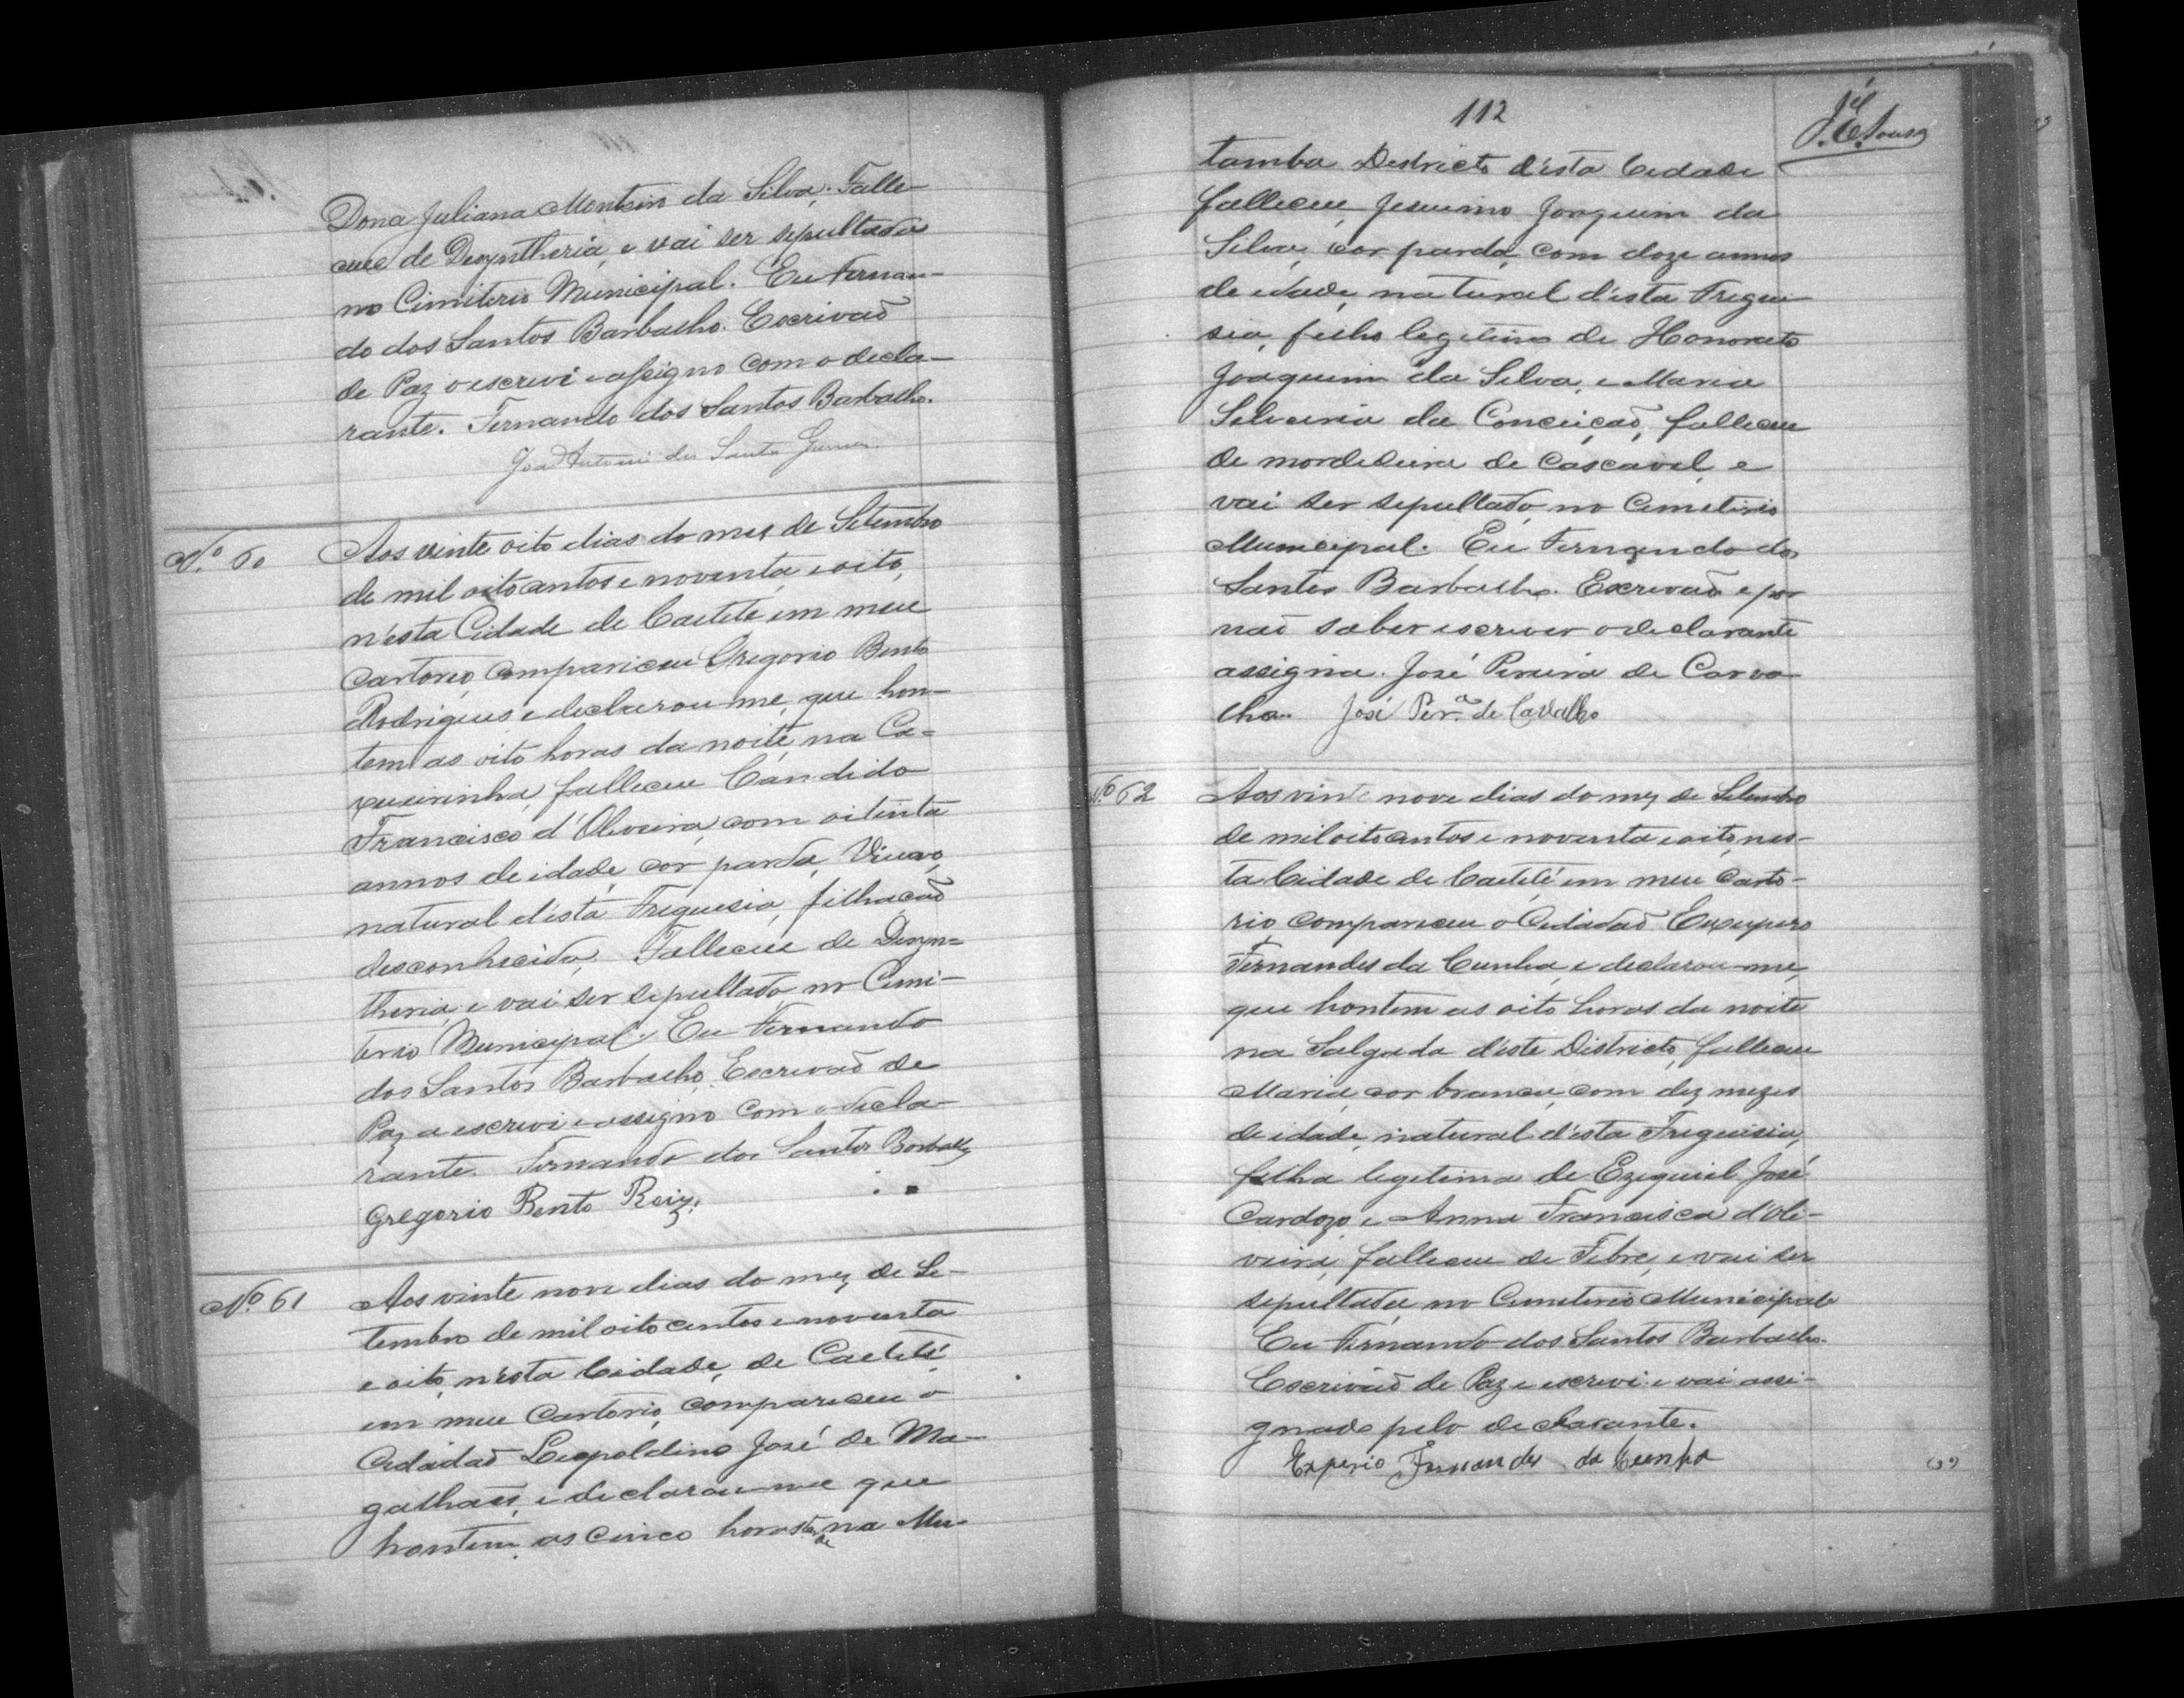 Dona Juliana Monteiro da Silva. Falle-
ceu de Desyntheria, e vai ser sepultada
no Cimiterio Municipal. Eu Fernan-
do dos Santos Barbalho. Escrivaõ
de Paz o escrevi e assigno com o decla-
rante. Fernando dos Santos Barbalho.
João Antonio dos Santos
Nº 60
Aos vinte oito dias do mez de Setembro
de mil oitocentos e noventa e oito,
n'esta Cidade de Caeteté em meu
Cartorio compariceu Gregorio Bento
Rodrigues e declarou-me, que hon-
tem as oito horas da noite, na Ca-
xueirinha, falleceu Cándido
Francisco d'Oliveira, com oitenta
annos de idade, cor parda, Viuvo,
natural d'esta Freguesia, filhaçaõ
desconhecida. Falleceu de Desyn=
theria, e vai ser sepultado no Cimi-
terio Municipal. Eu Fernando
dos Santos Barbalho. Escrivaõ de
Paz o escrevi e assigno com o decla-
rante. Fernando dos Santos Barbalho
Gregorio Bento Roiz.
Nº 61
Aos vinte nove dias do mez de Se-
tembro de mil oito centos e noventa
e oito, n'esta Cidade, de Caeteté
em meu Cartorio, compareceu o
Cidadaõ Leopoldino José de Ma-
galhaẽs, e declarou-me que
hontem, as cinco horas da tarde na Mu-
112
J. E. Sousa
tamba Districto d'esta Cidade
falleceu Jesuino Joaquim da
Silva, cor parda, com doze annos
de idade, natural d'esta Fregue-
sia, filho legitimo de Honorato
Joaquim da Silva, e Maria
Silveria da Conceiçaõ, falleceu
de mordedeira de Cascavel, e
vai ser sepultado no Cimeterio
Municipal. Eu Fernando dos
Santos Barbalho. Escrivaõ e por
naõ saber escrever o declarante
assigna José Pereira de Carva-
lho. José Per.ª de Carvalho
Nº 62
Aos vinte nove dias do mez de Setembro
de mil oitocentos e noventa e oito, nes-
ta Cidade de Caeteté em meu Carto-
rio, compareceu o Cidadaõ Exuperio
Fernandes da Cunha, e declarou-me,
que hontem as oito horas da noite
na Salgada d'este Districto, falleceu
Maria, cor branca, com dez mezes
de idade, natural d'esta Freguesia,
filha legitima de Ezequiel José
Cardozo e Anna Francisca d'Oli-
veira, falleceu de Febre, e vai ser
sepultada no Cimeterio Municipal.
Eu Fernando dos Santos Barbalho.
Escrivaõ de Paz o escrevi e vai assi-
gnado pelo declarante.
Experio Fernandes da Cunha